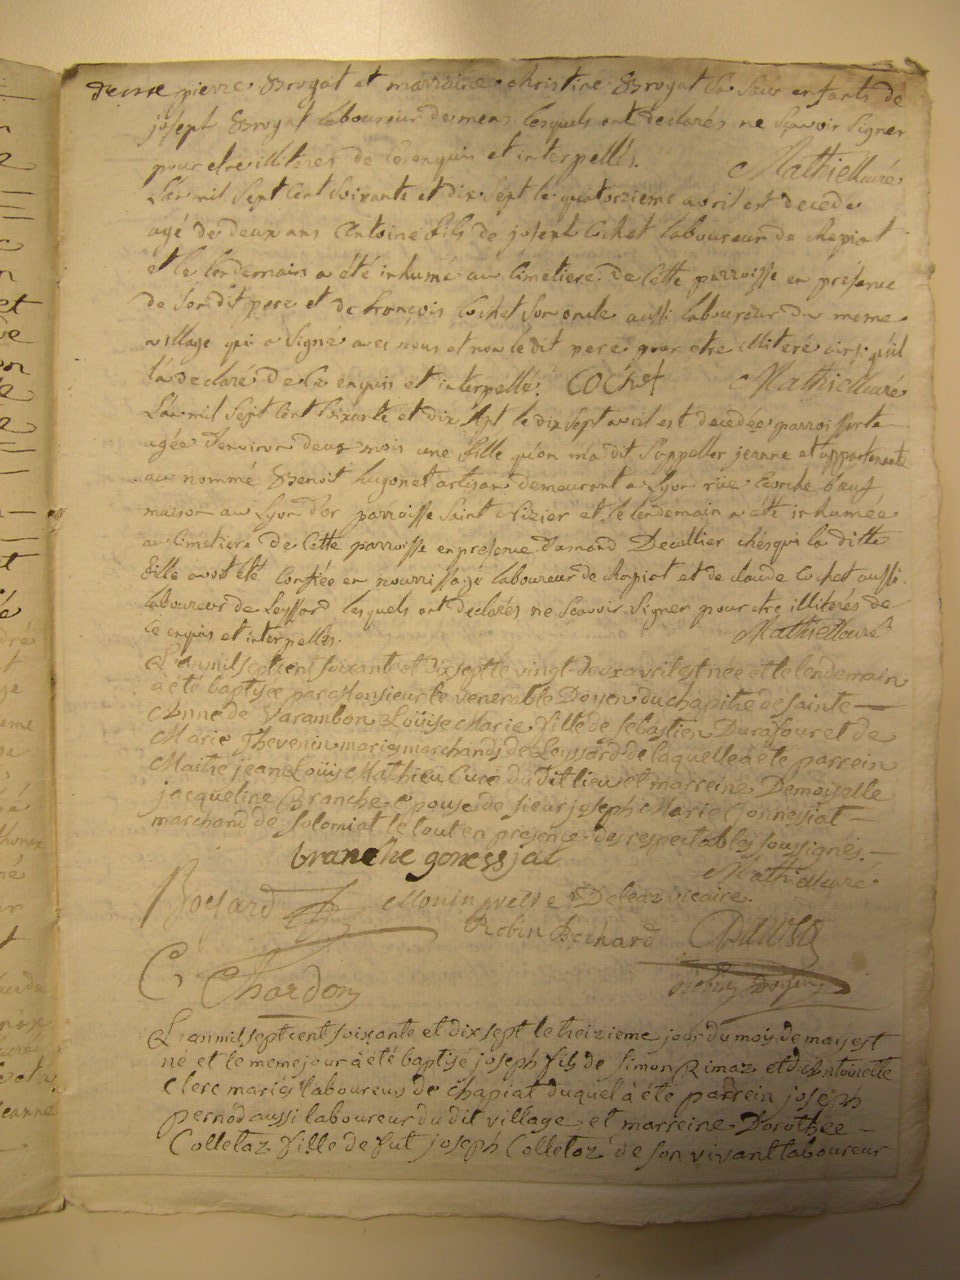 pierre Brogat et marraine christine Brogat la Sœur enfants de
joseph Brogat laboureur de mens lesquels ont declarés ne Sçavoir Signer
pour etre illiterés de ce enquis et interpellés. Mathieu curé
L'an mil Sept cent Soixante et dix Sept le quatorzieme avril est decedé
agé de deux ans Antoine fils de joseph Cochet laboureur de chapiat
et le lendemain a été inhumé au Cimetiere de Cette parroisse en présence
de Son dit pere et de françois Cochet Son oncle aussi laboureur du meme
village qui a Signé avec nous et non le dit pere pour etre illiteré ainsi qu'il
l'a declaré de ce enquis et interpellé. COChet Mathieu curé
L'an mil Sept Cent Soixante et dix Sept le dix Sept avril est decedée
agée d'environ deux mois une fille qu'on m'a dit S'appeller jeanne et appartenante
au nommé Benoit hugonet artisan demeurant a Lyon rüe Ecorche bœuf
maison au Lyon d'or parroisse Saint Nizier et le lendemain a été inhumée
au Cimetiere de Cette parroisse en presence d'amand Decullier chés qui la ditte
fille avoit été Confiée en nourrissage laboureur de chapiat et de claude Cochet aussi
laboureur de Leyssard lesquels ont declarés ne Scavoir Signer pour etre illiterés de
ce enquis et interpellés. Mathieu curé
L'an mil sept cent soixante et dix sept le vingt deux avril est née et le lendemain
a été baptisée par Monsieur le venerable Doyen du chapitre de sainte
Anne de Varambon Loüise Marie fille de sebastien Durafour et de
Marie Thevenin mariés marchands de Leyssard de laquelle a été parrein
Maitre jean Loüis Mathieu Curé du dit lieu et marreine Demoiselle
jacqueline Branche epouse de sieur joseph Marie Gonnessiat
marchand de solomiat le tout en presence des respectables soussignés.
branche gonessjat
Mathieu curé
Bossard Monin Deleaz vicaire.
Robin Bernard
C Chardon Doyen
L'an mil sept cent soixante et dix sept le treizieme jour du mois de may est
né et le meme jour à été baptisé joseph fils de Simon Rimaz et d'Antoinette
Clerc mariés laboureurs de chapiat duquel à été parrein joseph
pernod aussi laboureur du dit village et marreine Dorothée
Colletaz fille de fut joseph Colletaz de son vivant laboureur